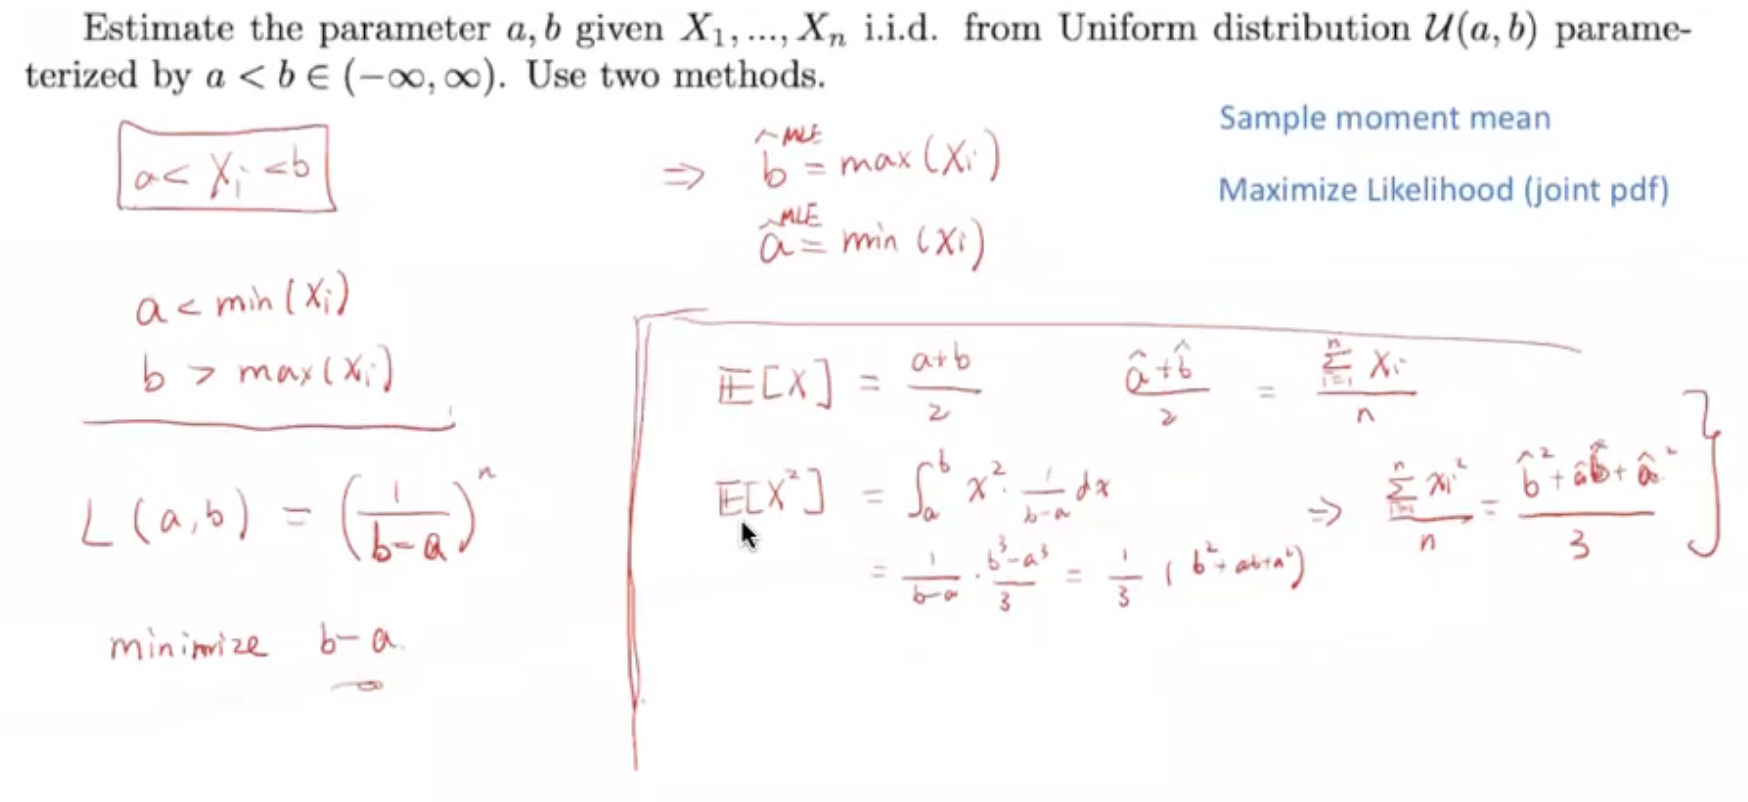 Estimate the parameter a, b given X₁, ..., Xₙ i.i.d. from Uniform distribution 𝒰(a, b) parame-
terized by a < b ∈ (−∞, ∞). Use two methods.
Sample moment mean
Maximize Likelihood (joint pdf)
a < Xᵢ < b
a < min (Xᵢ)
b > max (Xᵢ)
L (a, b) = (1/(b−a))ⁿ
minimize b−a.
⇒ b̂ᴹᴸᴱ = max (Xᵢ)
âᴹᴸᴱ = min (Xᵢ)
𝔼[X] = (a+b)/2 (â+b̂)/2 = (∑ᵢ₌₁ⁿ Xᵢ)/n
𝔼[X²] = ∫ₐᵇ x² · 1/(b−a) dx ⇒ (∑ᵢ₌₁ⁿ Xᵢ²)/n = (b̂² + âb̂ + â²)/3
= 1/(b−a) · (b³−a³)/3 = 1/3 (b²+ab+a²)